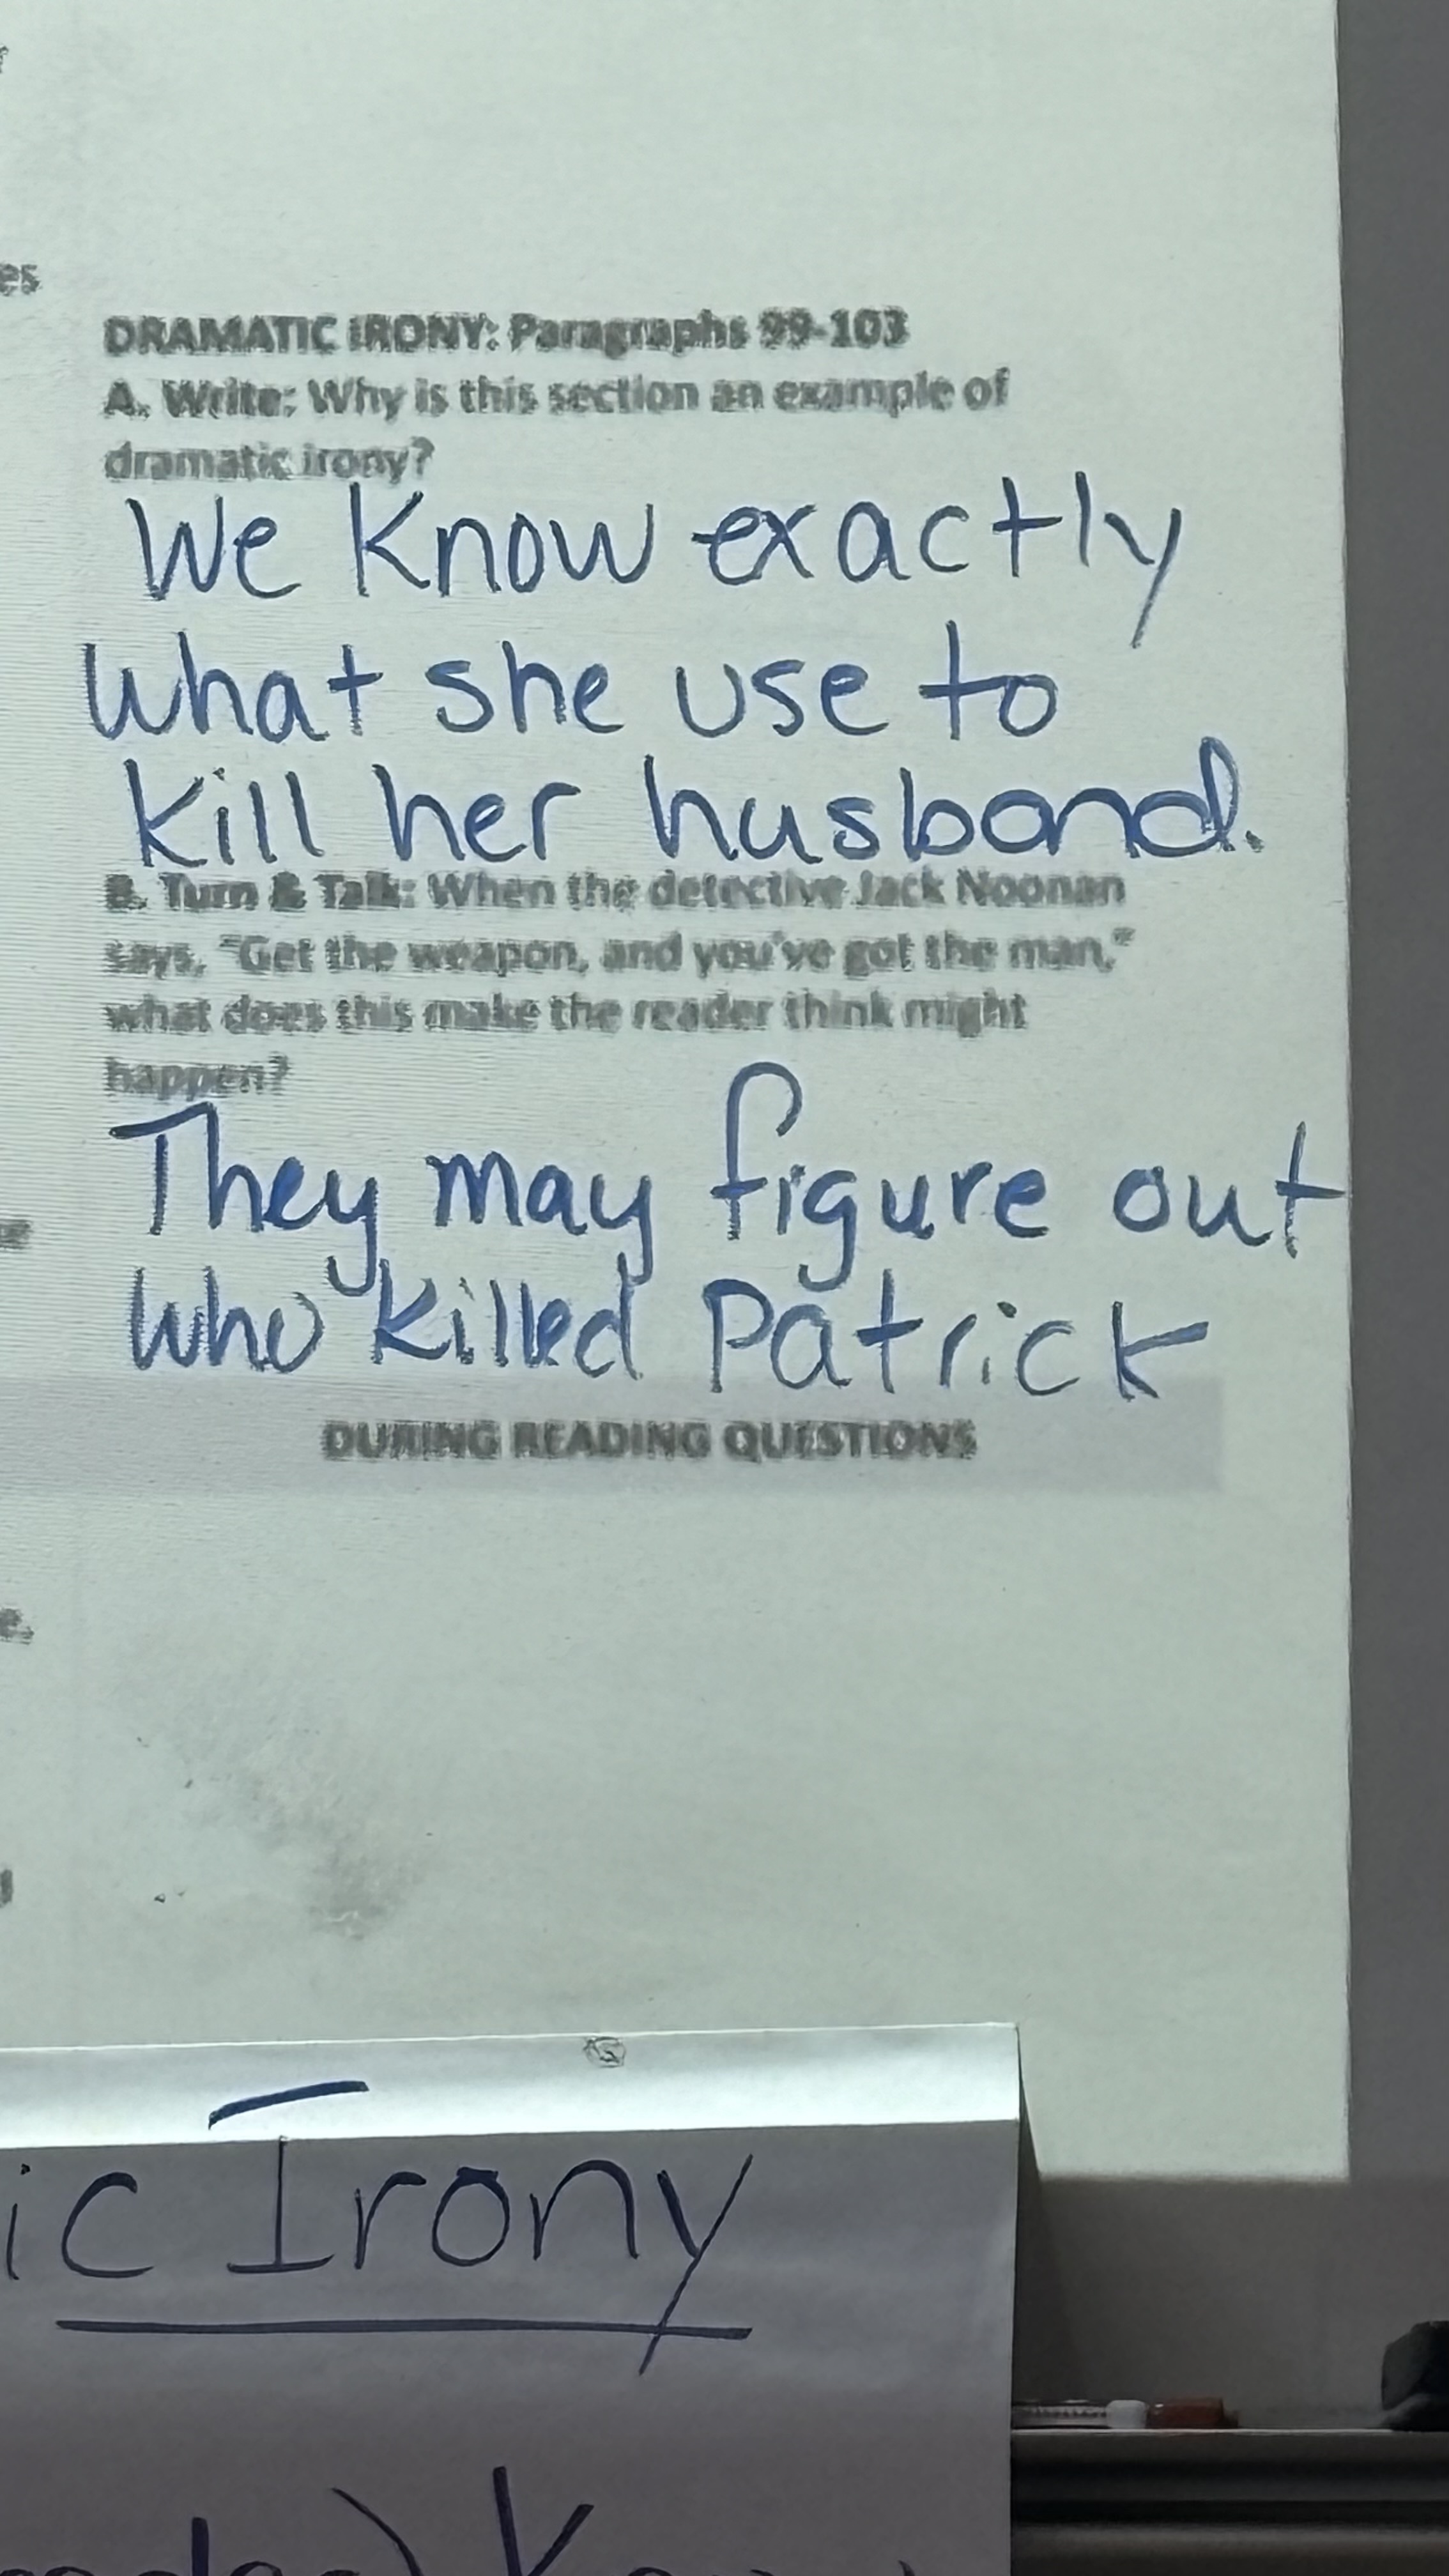 es
DRAMATIC IRONY: Paragraphs 99-103
A. Write: Why is this section an example of
dramatic irony?
We Know exactly
what she use to
kill her husband.
B. Turn & Talk: When the detective Jack Noonan
says, "Get the weapon, and you've got the man,"
what does this make the reader think might
happen?
They may figure out
who killed Patrick
DURING READING QUESTIONS
e.
ic Irony